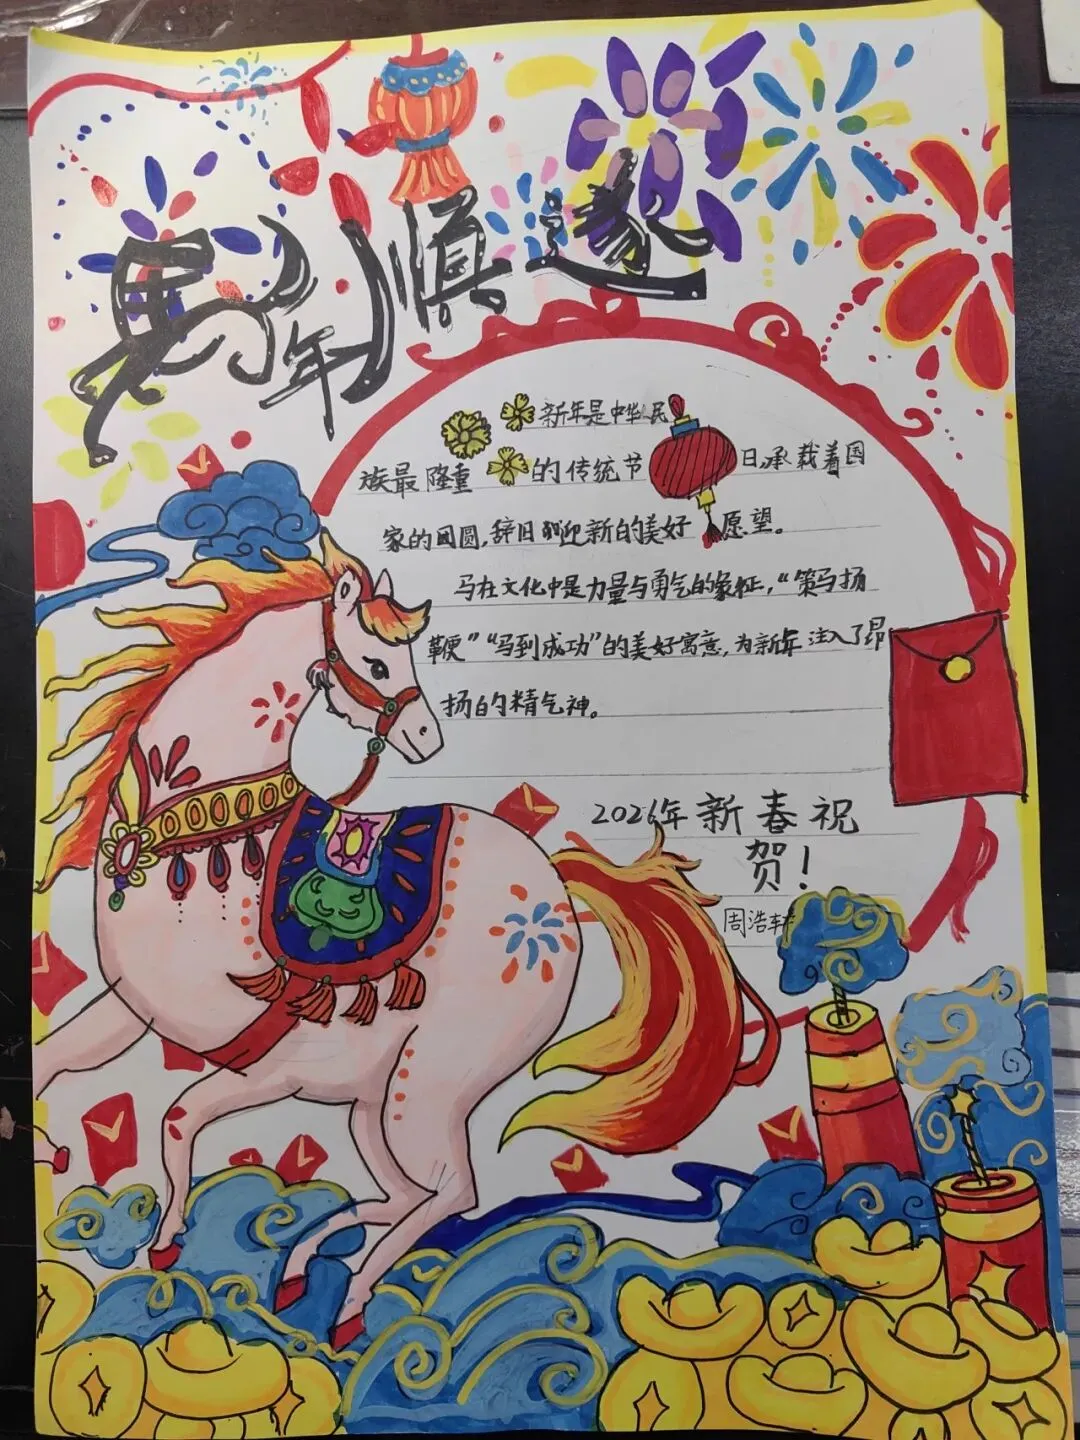 马年顺遂
新年是中华民
族最隆重的传统节日,承载着国
家的团圆,辞旧迎新的美好愿望。
马在文化中是力量与勇气的象征,“策马扬
鞭”“马到成功”的美好寓意,为新年注入了昂
扬的精气神。
2026年新春祝
贺!
周浩轩